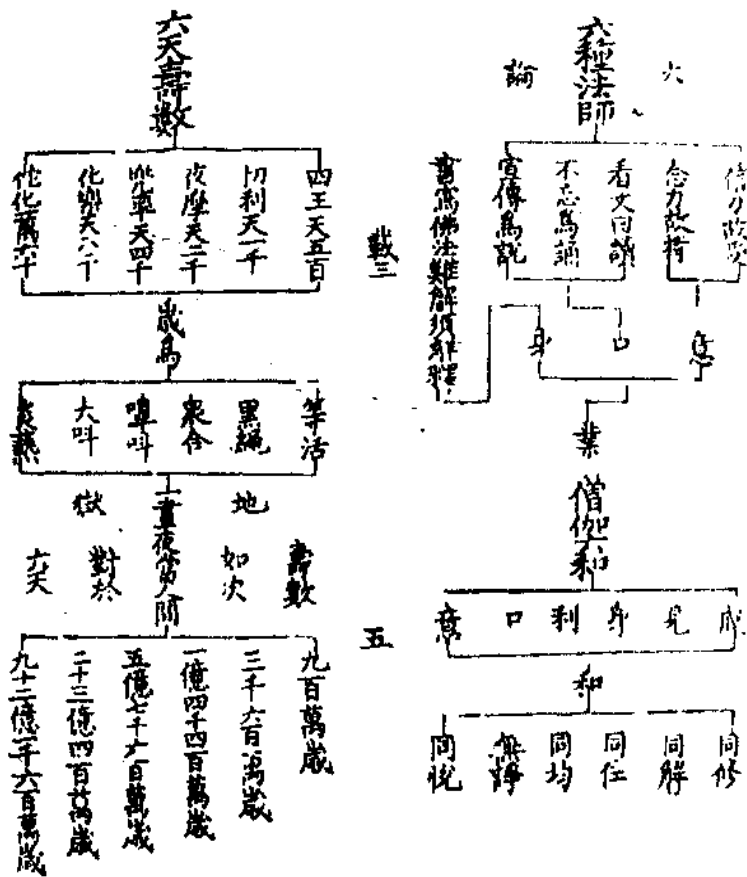 六種法師
大
論
信力故受
念力故持
看文曰讀
不忘為誦
宣傳為說
書寫佛法難解須解釋
意
口
身
業
僧伽六和
戒
見
身
利
口
意
和
同修
同解
同住
同均
無諍
同悅
載三
五
六天壽數
四王天五百
忉利天一千
夜摩天二千
兜率天四千
化樂天八千
他化萬六千
歲為
等活
黑繩
眾合
嘷叫
大叫
炎熱
地
獄
一晝夜
壽數
如次
對於
六天
九百萬歲
三千六百萬歲
一億四千四百萬歲
五億七千六百萬歲
二十三億四百萬歲
九十二億一千六百萬歲